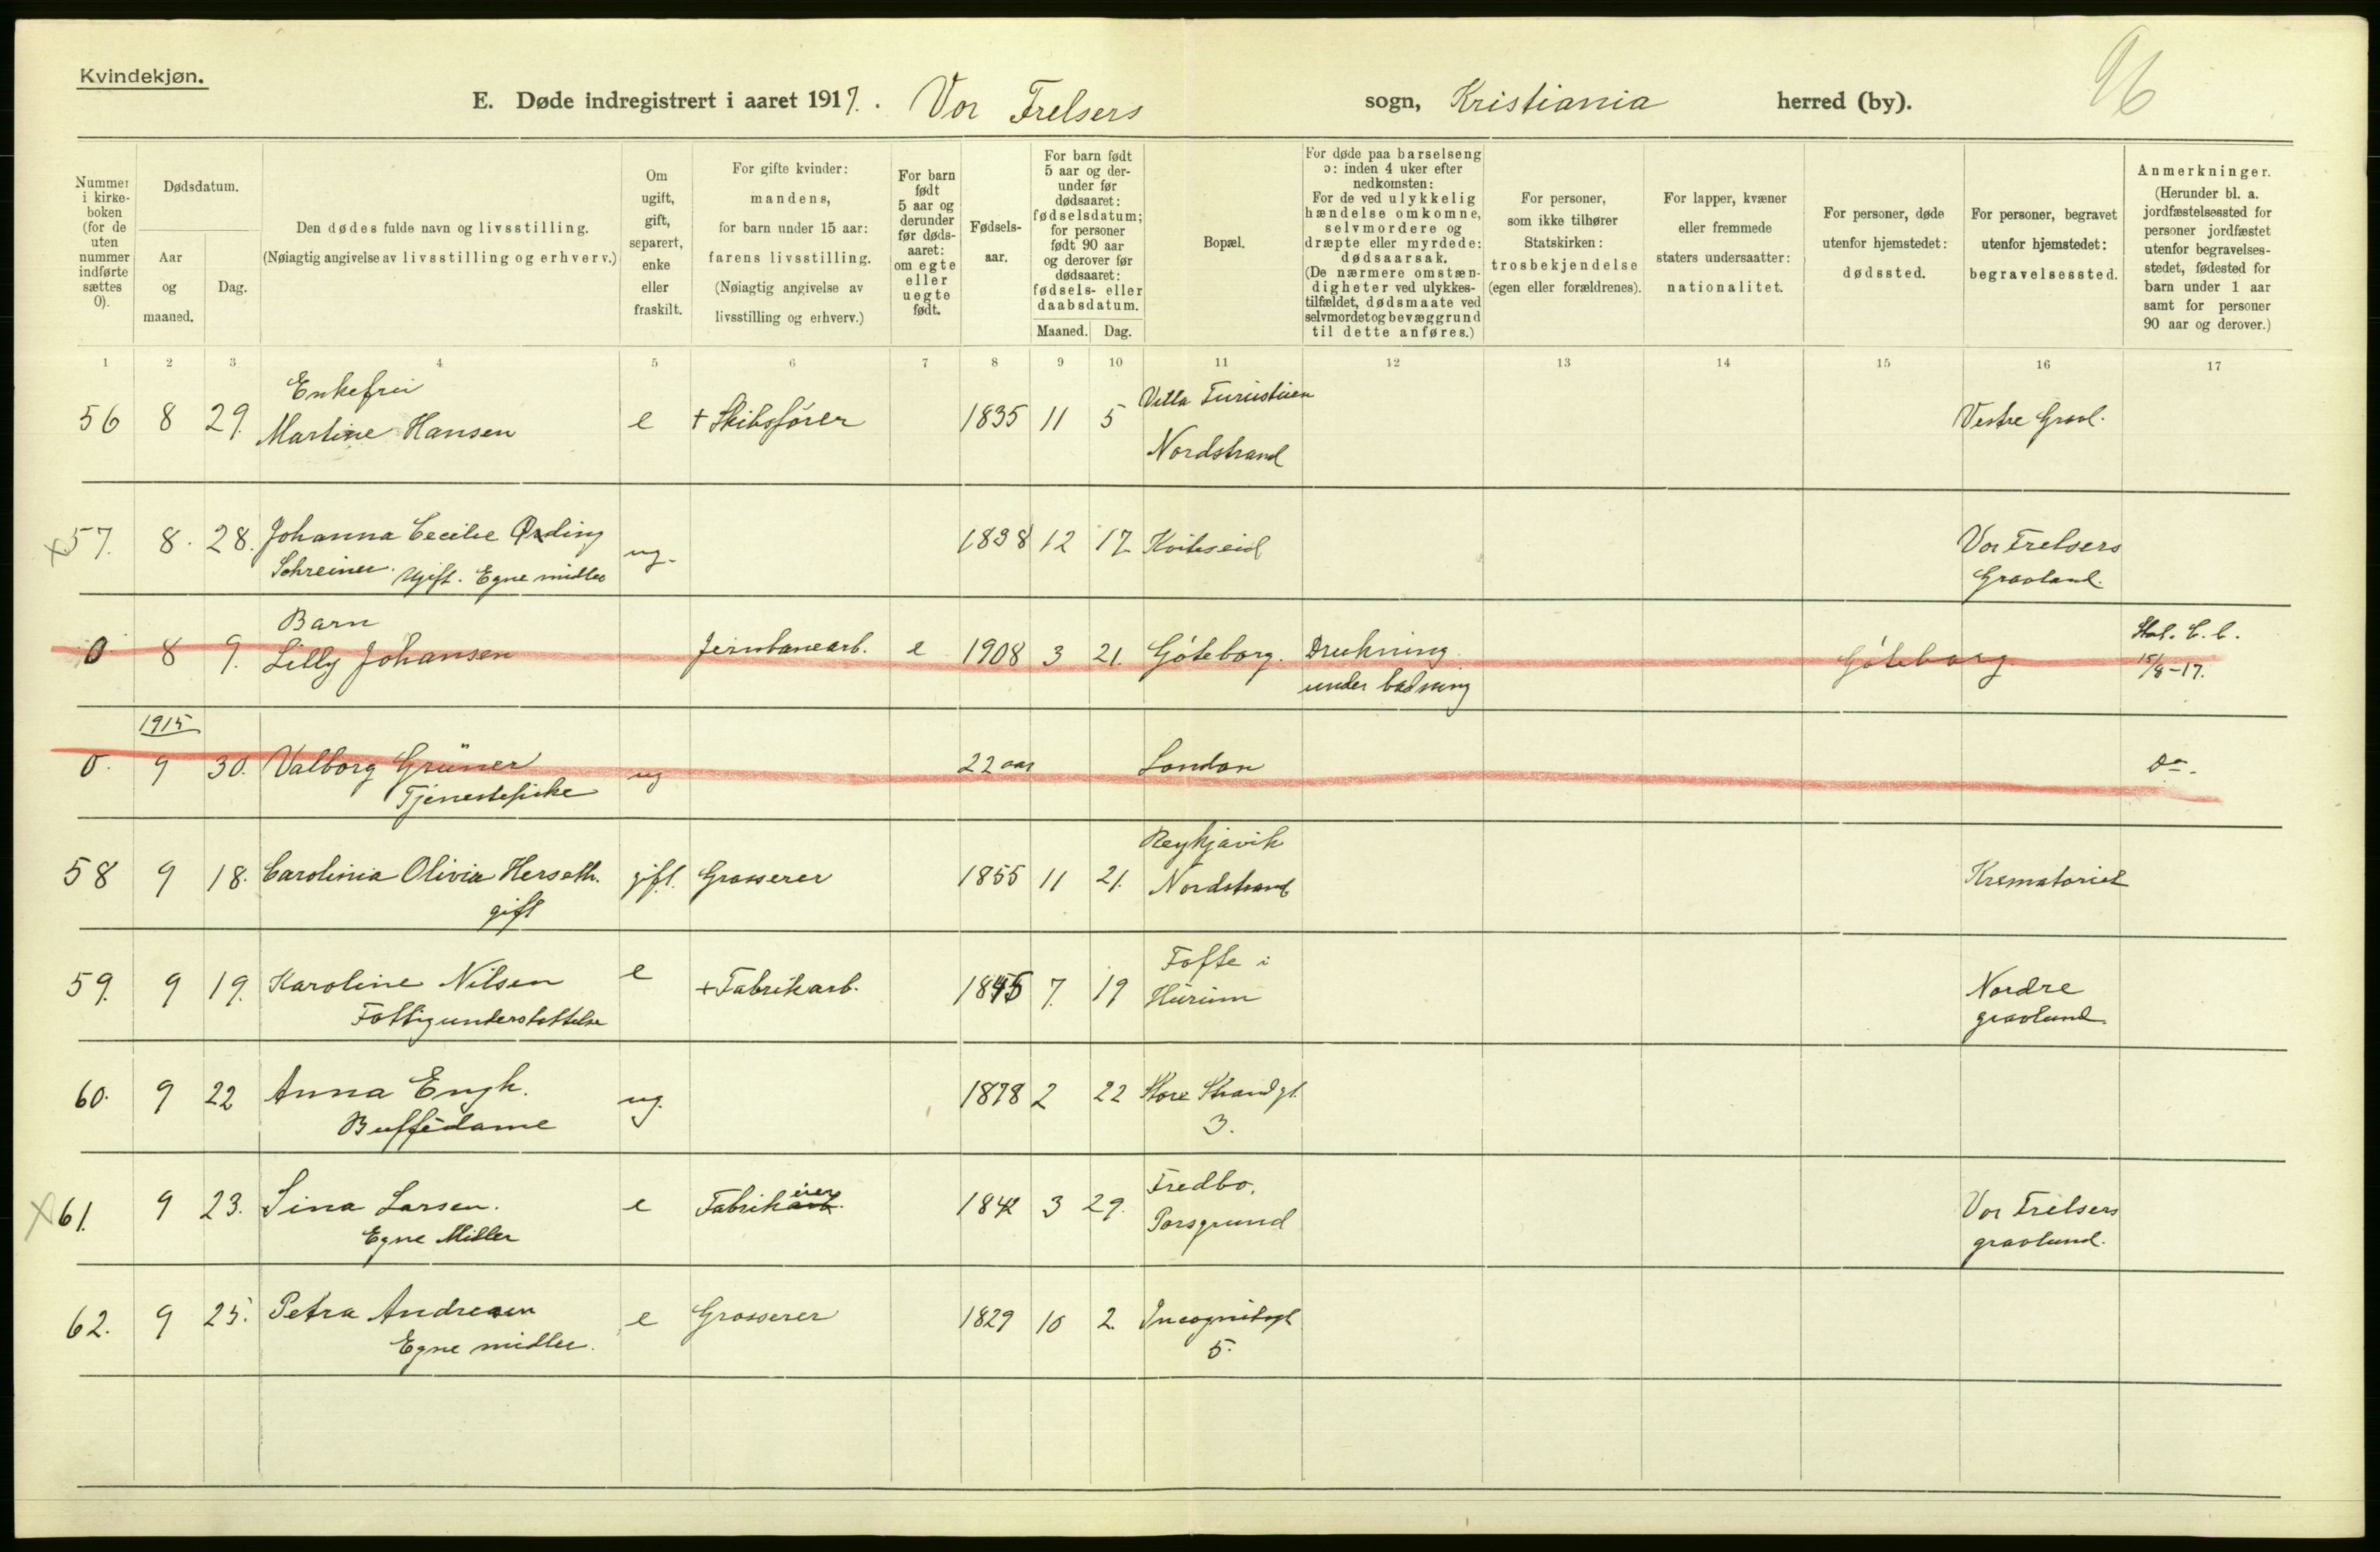 Kvindekjøn.
96
E. Døde indregistrert i aaret 1917. Vor Frelsers sogn, Kristiania herred (by).
Nummer i kirke-boken (for de uten nummer indførte sættes 0).
Dødsdatum.
Aar og maaned.
Dag.
Den dødes fulde navn og livsstilling.
(Nøiagtig angivelse av livsstilling og erhverv.)
Om ugift, gift, separert, enke eller fraskilt.
For gifte kvinder: mandens, for barn under 15 aar: farens livsstilling. (Nøiagtig angivelse av livsstilling og erhverv.)
For barn født 5 aar og derunder før døds-aaret: om egte eller uegte født.
Fødsels-aar.
For barn født 5 aar og der-under før dødsaaret: fødselsdatum; for personer født 90 aar og derover før dødsaaret: fødsels- eller daabsdatum.
Maaned. Dag.
Bopæl.
For døde paa barselseng ɔ: inden 4 uker efter nedkomsten: For de ved ulykkelig hændelse omkomne, selvmordere og dræpte eller myrdede: dødsaarsak. (De nærmere omstæn-digheter ved ulykkes-tilfældet, dødsmaate ved selvmordet og bevæggrund til dette anføres.)
For personer, som ikke tilhører Statskirken: trosbekjendelse (egen eller forældrenes).
For lapper, kvæner eller fremmede staters undersaatter: nationalitet.
For personer, døde utenfor hjemstedet: dødssted.
For personer, begravet utenfor hjemstedet: begravelsessted.
Anmerkninger. (Herunder bl. a. jordfæstelsessted for personer jordfæstet utenfor begravelses-stedet, fødested for barn under 1 aar samt for personer 90 aar og derover.)
1 2 3 4 5 6 7 8 9 10 11 12 13 14 15 16 17
Enkefru Villa
56 8 29. Martine Hansen e + Skibsfører 1835 11 5 Nordstrand Vestre Gravl.
57. 8. 28. Johanna Cecilie Ording ug. 1838 12 17 Kviteseid Vor Frelsers
Schreiner. Ugift. Egne midler Gravlund.
Barn Stat. C. C.
0 8 9. Lilly Johansen Jernbanearb. e 1908 3 21. Göteborg. Drukning Göteborg 15/8-17.
under badning
1915
0. 9 30. Valborg Grüner ug 22 aar London Do.
Tjenestepike
Reykjavik
58 9 18. Carolinia Olivia Herseth. gift. Grosserer 1855 11 21. Nordstrand Krematoriet
gift
Tofte i
59. 9 19. Karoline Nilsen e + Fabrikarb. 1845 7. 19 Hurum Nordre
Fattigunderstøttelse gravlund.
60. 9 22 Anna Engh. ug. 1878 2 22 Store Strandgt.
Buffédame 3.
Fredbo,
61. 9 23. Sina Larsen. e Fabrikarb. eier 1842 3 29. Porsgrund Vor Frelsers
Egne Midler gravlund.
62. 9 25. Petra Andresen e Grosserer 1829 10 2. Incognitogt
Egne midler. 5.